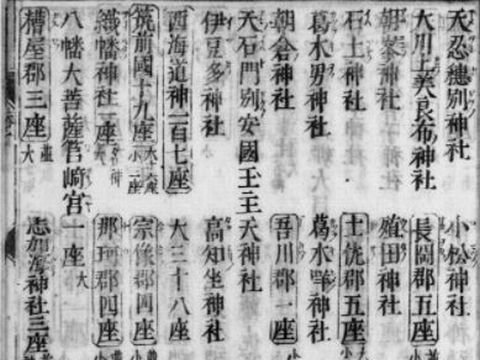 天忍穗別神社　小松神社
大川上美良布神社　長岡郡五座
朝峯神社　殖田神社
石土神社　土佐郡五座 大
葛木男神社　葛木咩神社
朝倉神社　吾川郡一座 小
天石門別安國玉主天神社
伊豆多神社　高知坐神社
西海道神一百七座　大三十八座
筑前國十九座　宗像郡四座
織幡神社一座　那珂郡四座
八幡大菩薩筥崎宮一座 大
糟屋郡三座 並大　志加海神社三座